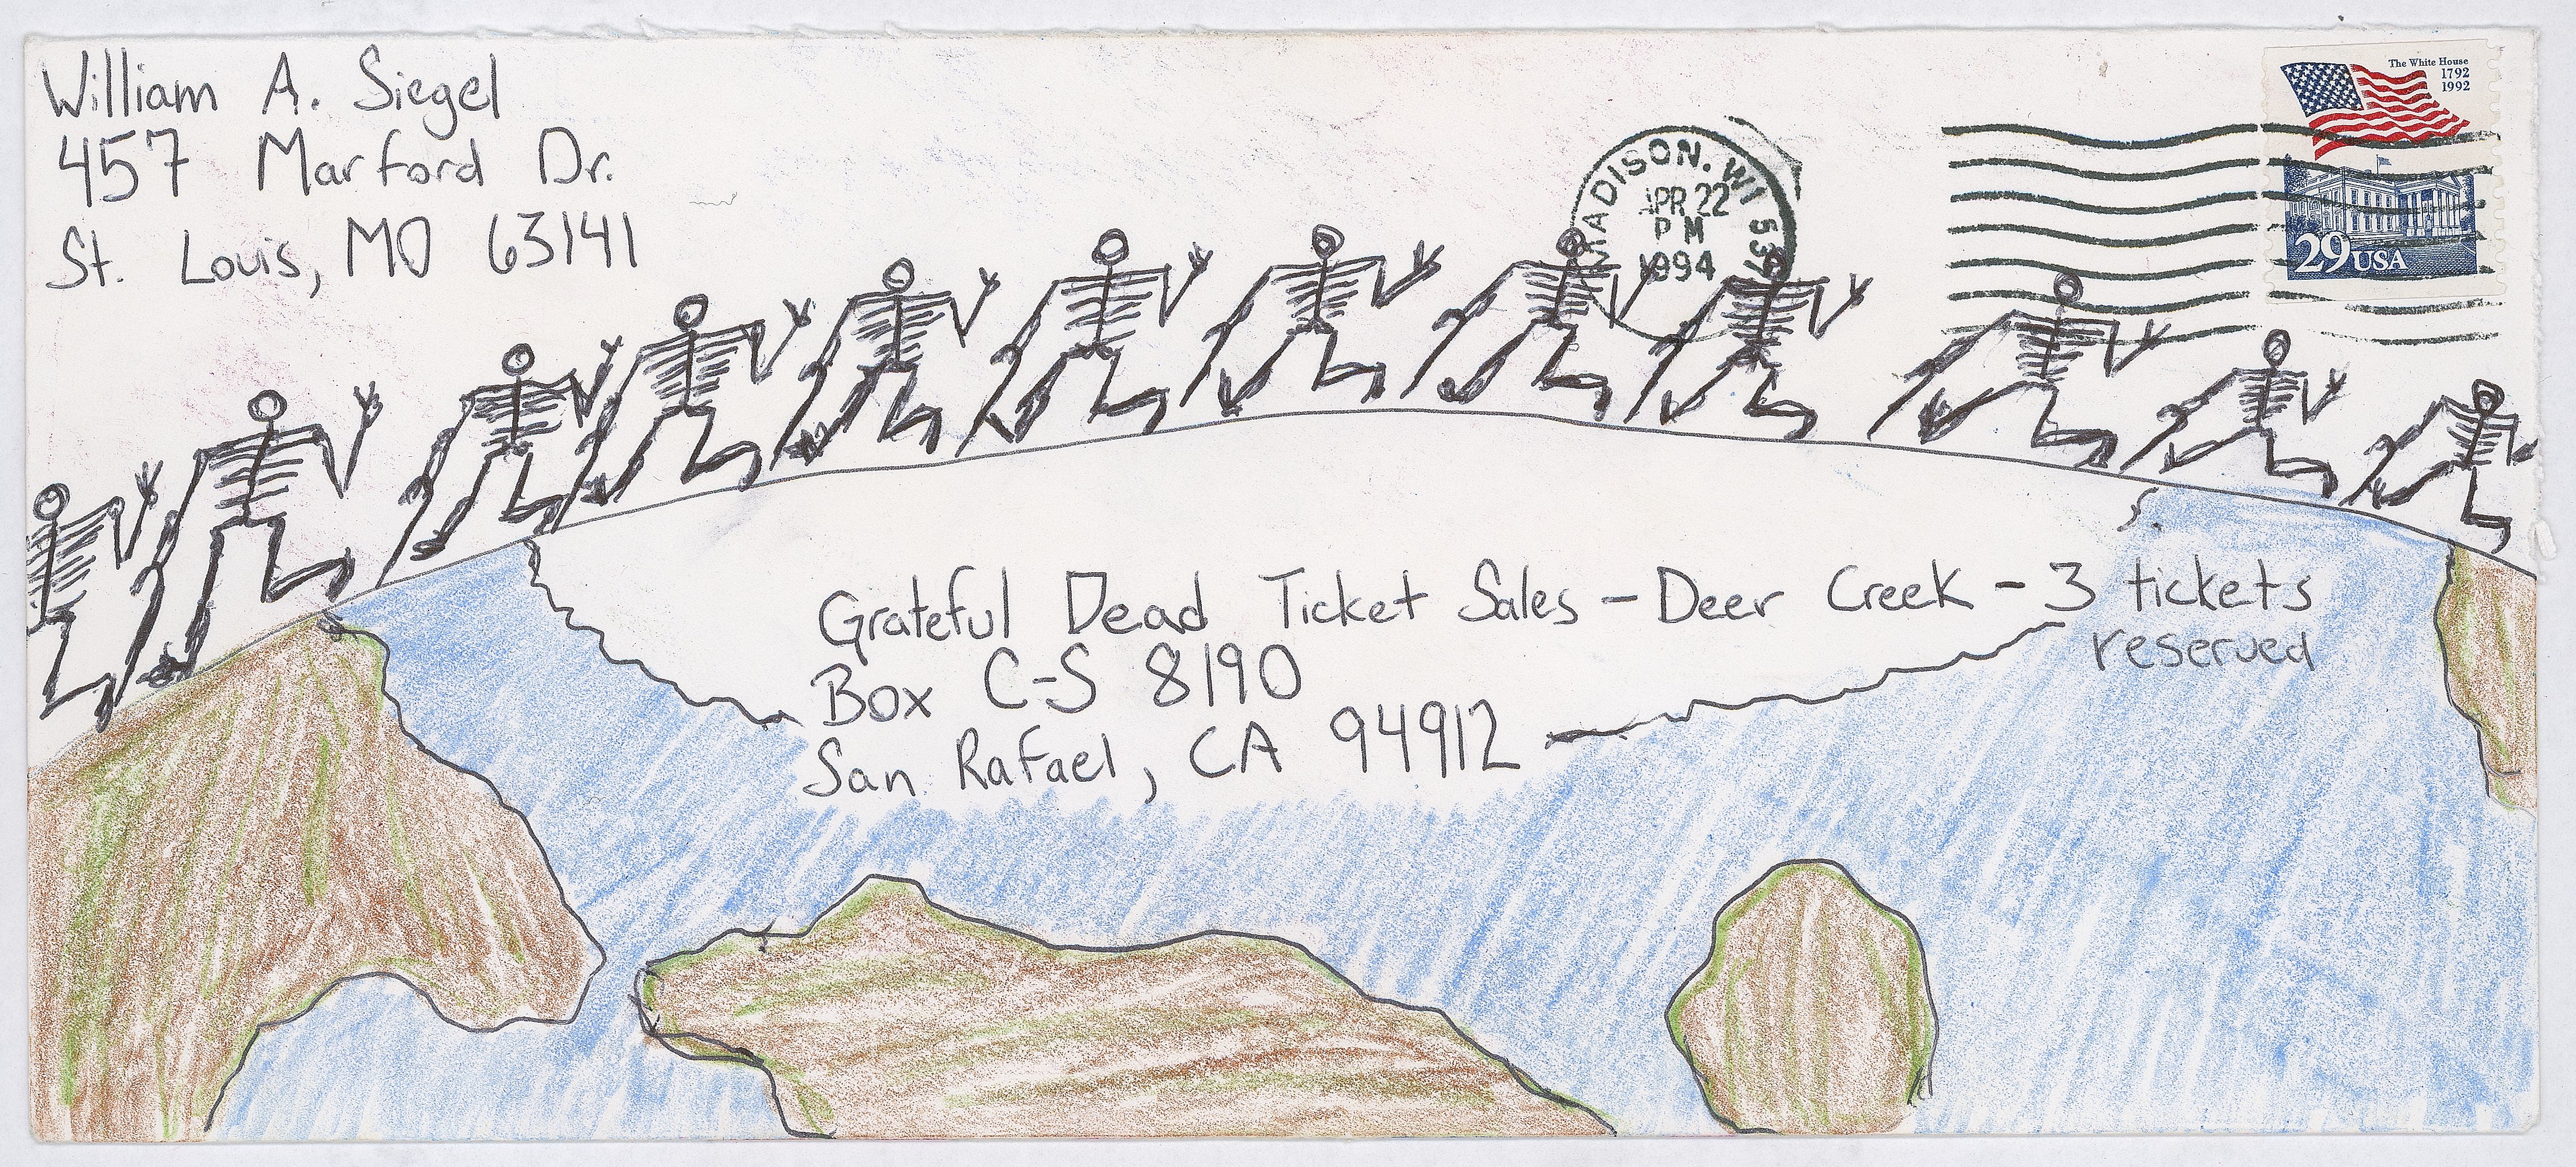 William A. Siegel
457 Marford Dr.
St. Louis, MO 63141
The White House
1792
1992
29 USA
MADISON, WI 537
APR 22
PM
1994
Grateful Dead Ticket Sales - Deer Creek - 3 tickets
reserved
Box C-S 8190
San Rafael, CA 94912